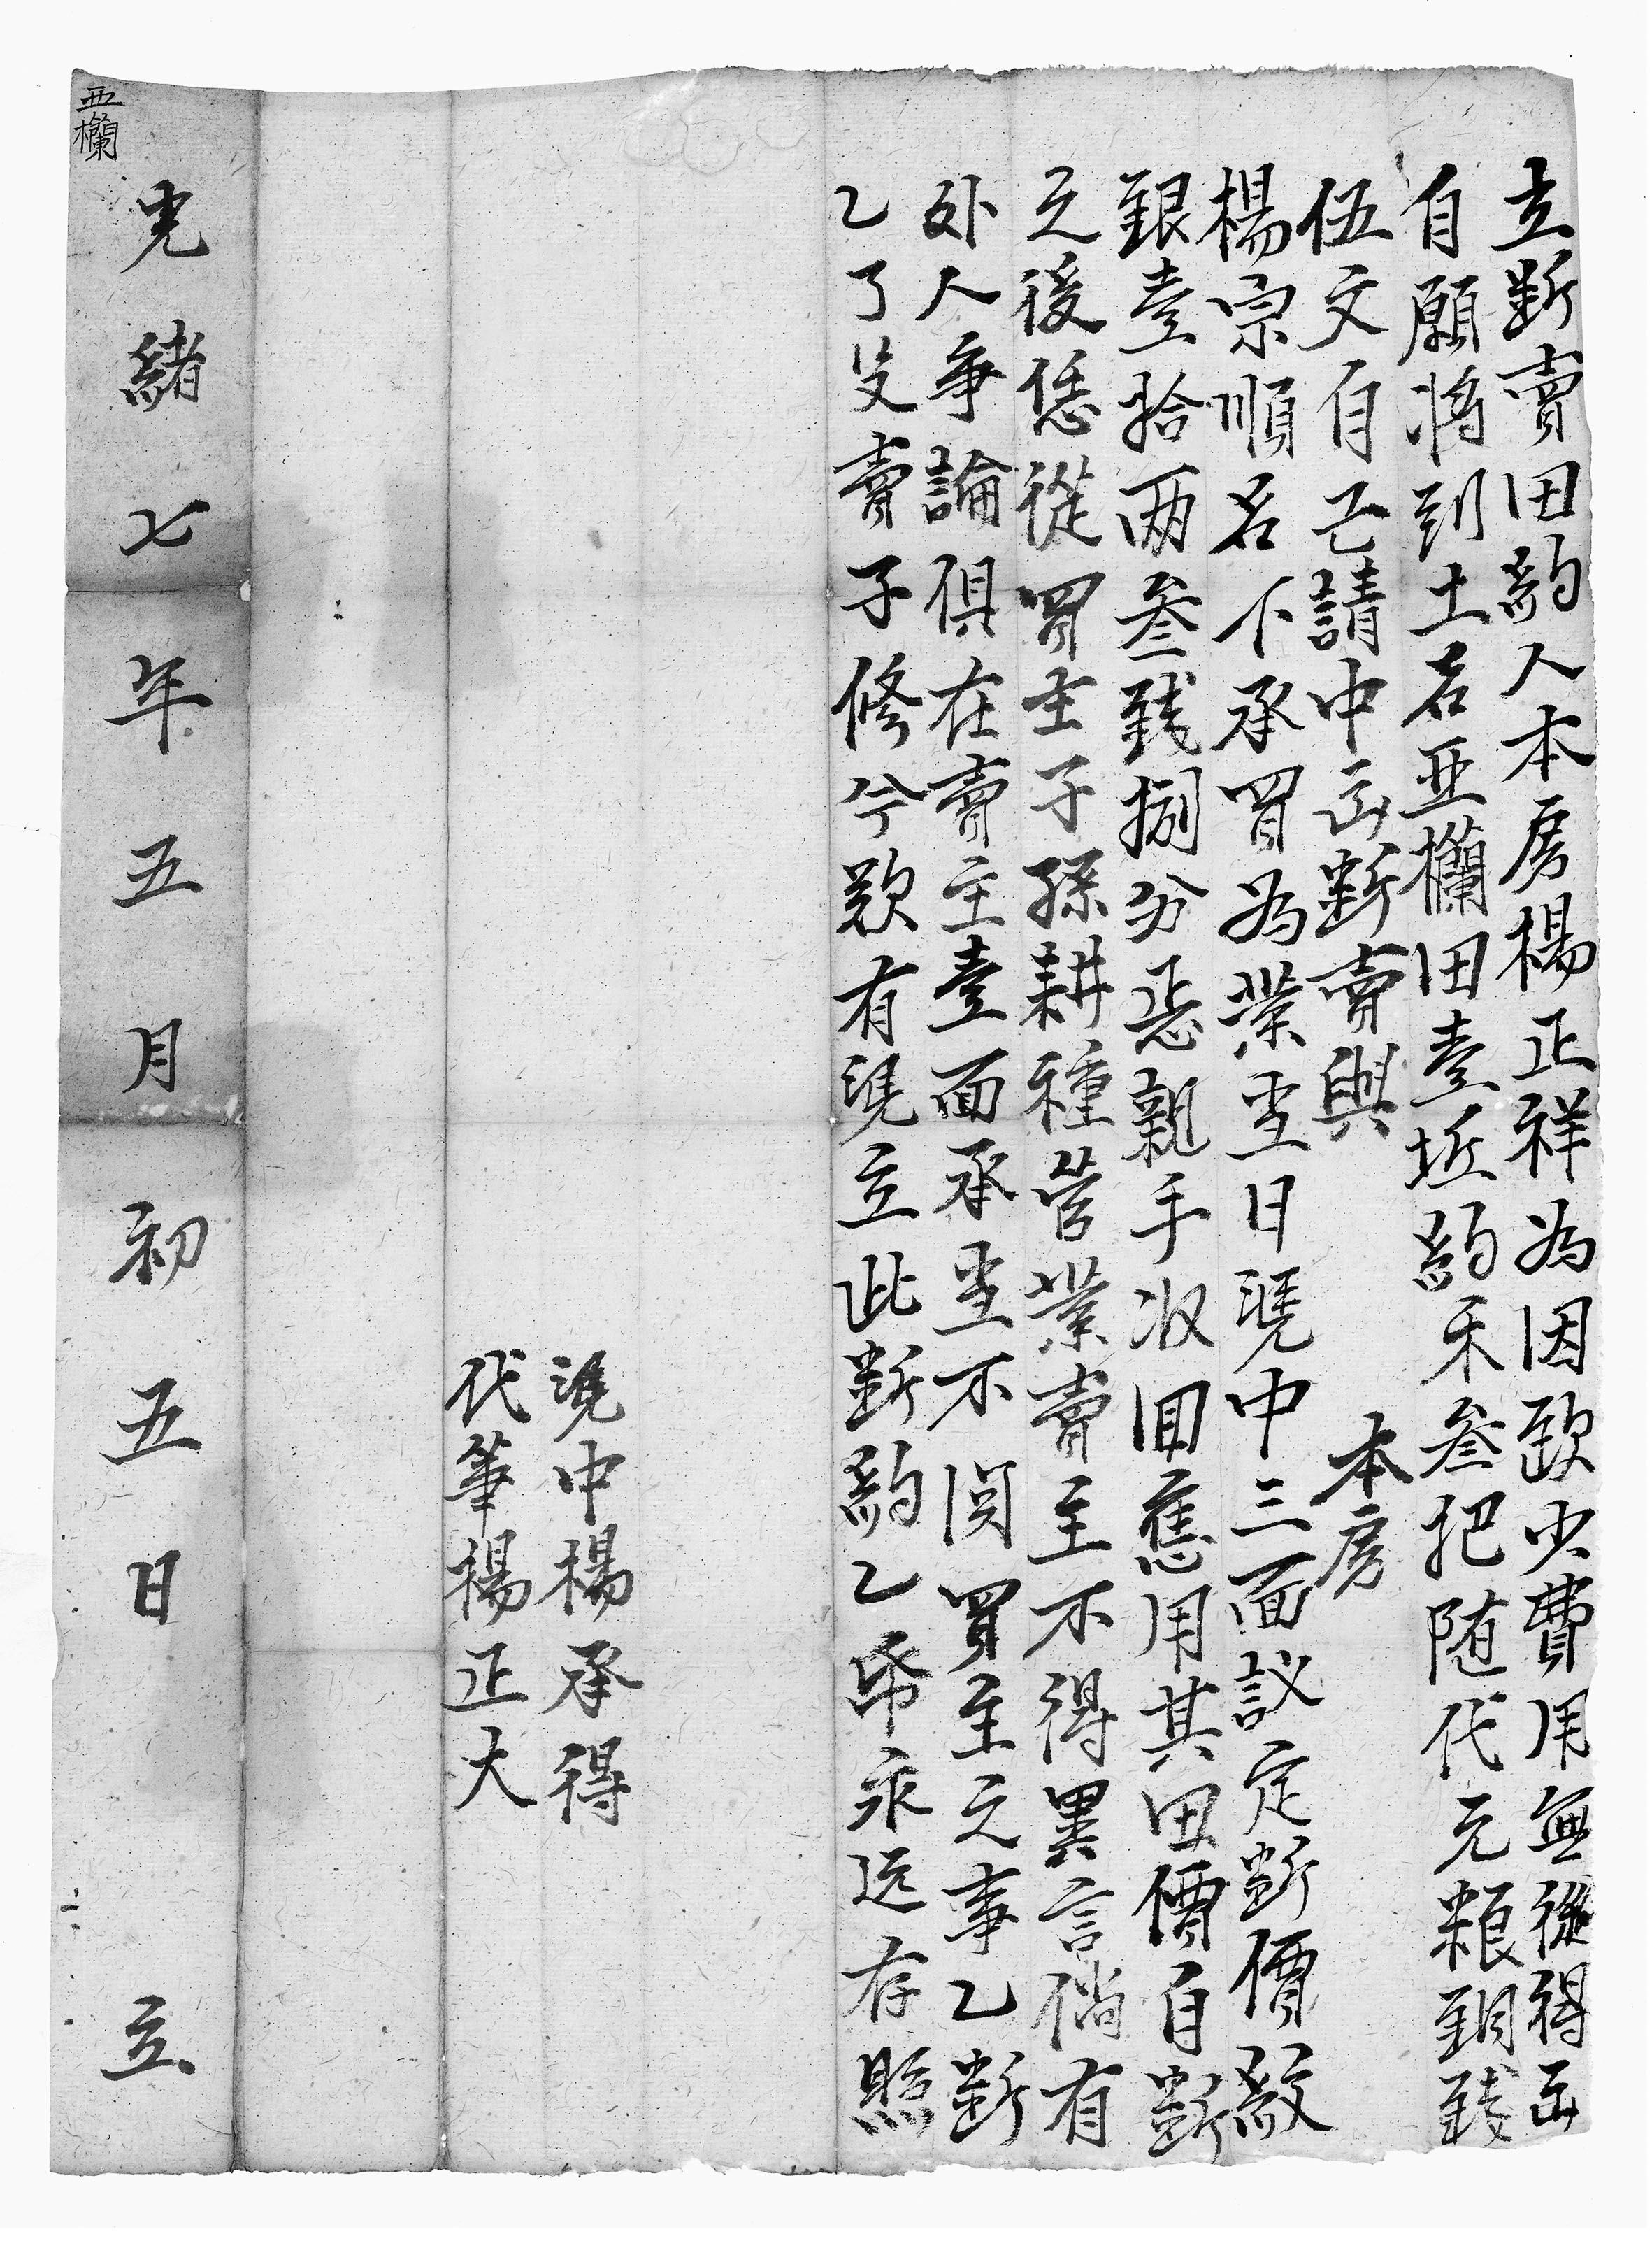 立斷賣田約人本房楊正祥為因欧少費用無從得出
自願將到土名亚欄田壹坵約禾叁把随代元粮銅銭
伍文自己請中出斷賣與
本房
楊宗順名下承買為業当日凴中三面議定斷價紋
銀壹拾両叁銭捌分正親手収回應用其田價自斷
之後恁從買主子孫耕種管業賣主不得異言倘有
外人爭論俱在賣主壹面承当不関買主之事乙斷
乙了父賣子修兮欵有凴立此斷約乙帋永远存照
凴中楊承得
代筆楊正大
光緒七年五月初五日立
亚欄